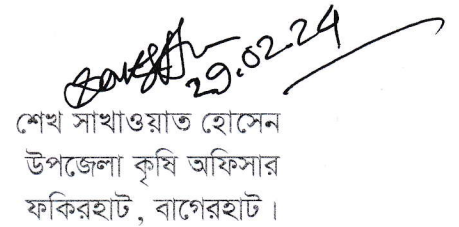 29.02.24
শেখ সাখাওয়াত হোসেন
উপজেলা কৃষি অফিসার
ফকিরহাট, বাগেরহাট।